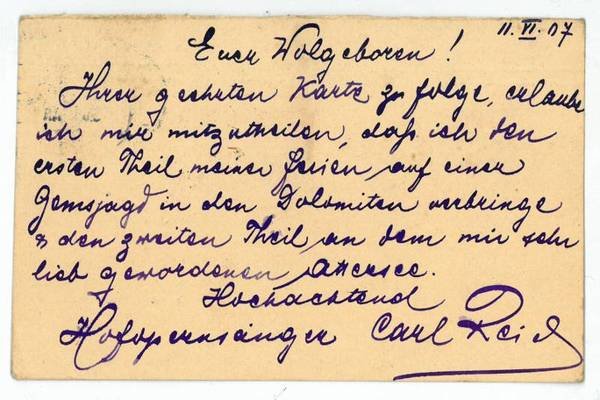 11. VI. 07
Euer Wolgeboren!
Ihrer geehrten Karte zu folge, erlaube
ich mir mitzutheilen, daß ich den
ersten Theil meiner Ferien auf einer
Gemsjagd in den Dolomiten verbringe
& den zweiten Theil an dem mir sehr
lieb gewordenen Attersee.
Hochachtend
Hofopernsänger Carl